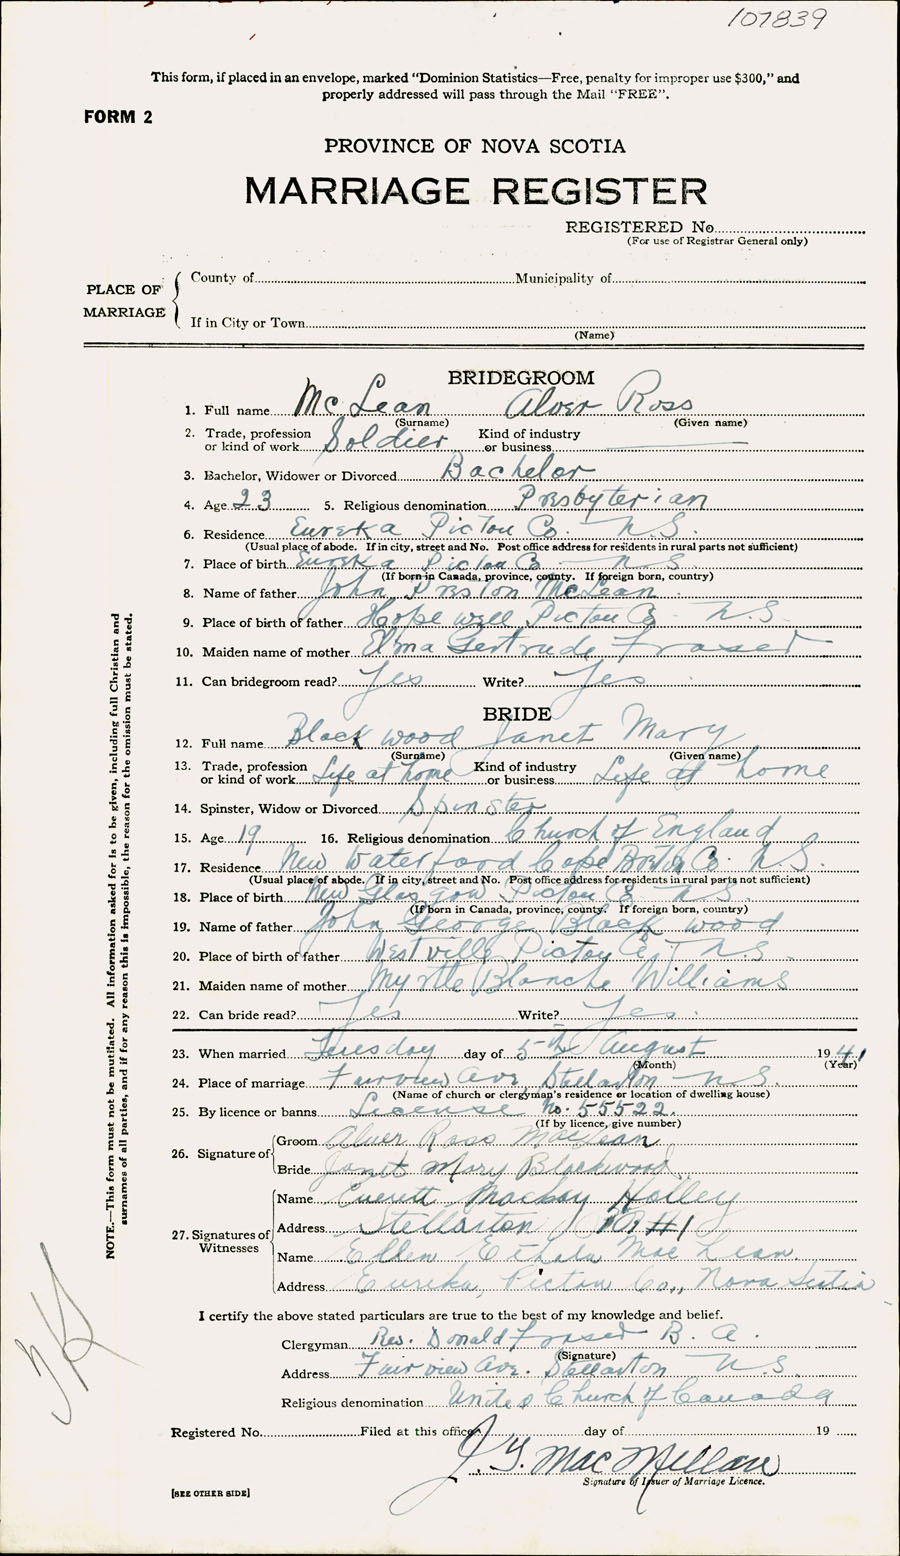 107839
This form, if placed in an envelope, marked "Dominion Statistics—Free, penalty for improper use $300," and
properly addressed will pass through the Mail "FREE".
FORM 2
PROVINCE OF NOVA SCOTIA
MARRIAGE REGISTER
REGISTERED No.
(For use of Registrar General only)
PLACE OF MARRIAGE
County of Municipality of
If in City or Town
(Name)
BRIDEGROOM
1. Full name McLean Alver Ross
(Surname) (Given name)
2. Trade, profession or kind of work Soldier Kind of industry or business
3. Bachelor, Widower or Divorced Bachelor
4. Age 23 5. Religious denomination Presbyterian
6. Residence Eureka Pictou Co. N.S.
(Usual place of abode. If in city, street and No. Post office address for residents in rural parts not sufficient)
7. Place of birth Eureka Pictou Co N.S.
(If born in Canada, province, county. If foreign born, country)
8. Name of father John Preston McLean
9. Place of birth of father Hopewell Pictou Co N.S.
10. Maiden name of mother Elma Gertrude Fraser
11. Can bridegroom read? Yes Write? Yes
BRIDE
12. Full name Blackwood Janet Mary
(Surname) (Given name)
13. Trade, profession or kind of work Life at home Kind of industry or business Life at home
14. Spinster, Widow or Divorced Spinster
15. Age 19 16. Religious denomination Church of England
17. Residence New Waterford Cape Breton Co. N.S.
(Usual place of abode. If in city, street and No. Post office address for residents in rural parts not sufficient)
18. Place of birth New Glasgow Pictou Co N.S.
(If born in Canada, province, county. If foreign born, country)
19. Name of father John George Blackwood
20. Place of birth of father Westville Pictou Co N.S.
21. Maiden name of mother Myrtle Blanche Williams
22. Can bride read? Yes Write? Yes.
23. When married Tuesday day of 5th August 1941
(Month) (Year)
24. Place of marriage Fairview Ave Stellarton N.S.
(Name of church or clergyman's residence or location of dwelling house)
25. By licence or banns License No. 55522.
(If by licence, give number)
26. Signature of
Groom Alver Ross MacLean
Bride Janet Mary Blackwood
27. Signatures of Witnesses
Name Everett Mackay Holley
Address Stellarton RR #1
Name Ellen MacLean
Address Eureka, Pictou Co., Nova Scotia
I certify the above stated particulars are true to the best of my knowledge and belief.
Clergyman Rev. Donald Fraser B. A.
(Signature)
Address Fairview Ave. Stellarton N.S.
Religious denomination United Church of Canada
Registered No. Filed at this office day of 19
J. G. MacMillan
Signature of Issuer of Marriage Licence.
[SEE OTHER SIDE]
NOTE.—This form must not be mutilated. All information asked for is to be given, including full Christian and
surnames of all parties, and if for any reason this is impossible, the reason for the omission must be stated.